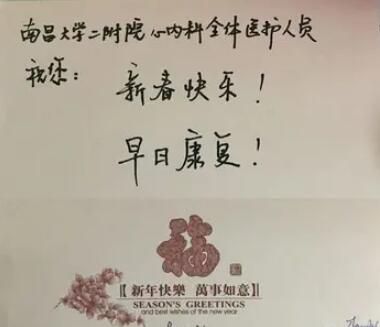 南昌大学二附院心内科全体医护人员
祝您：
新春快乐！
早日康复！
福
【新年快樂 萬事如意】
SEASON'S GREETINGS
and best wishes of the new year